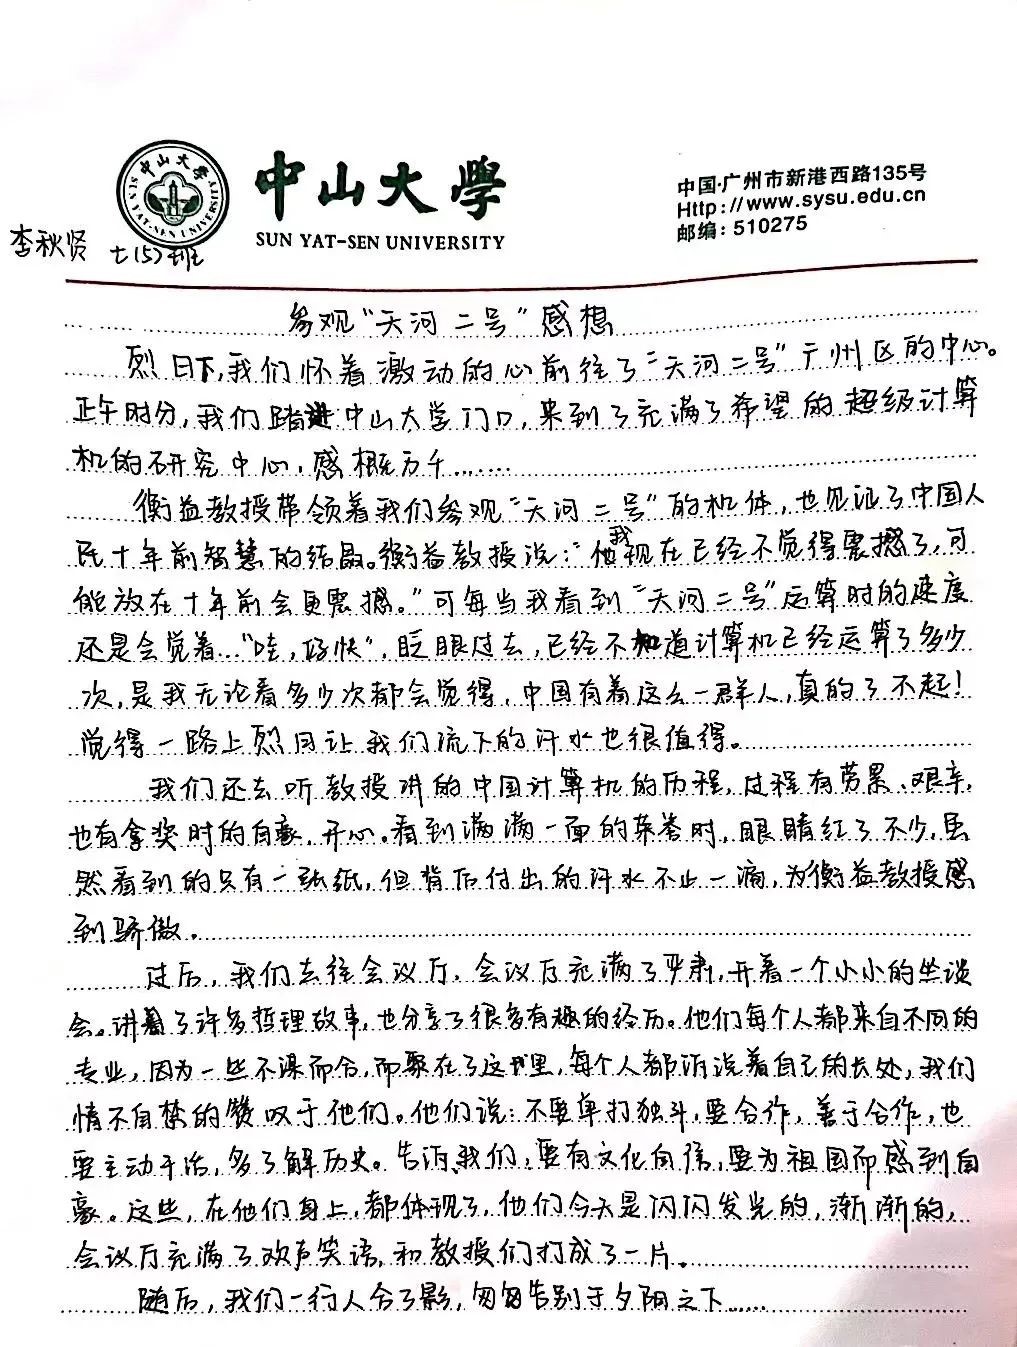 中山大学
SUN YAT-SEN UNIVERSITY
中山大学
SUN YAT-SEN UNIVERSITY
中国·广州市新港西路135号
Http://www.sysu.edu.cn
邮编:510275
李秋贤 七(5)班
参观“天河二号”感想
烈日下,我们怀着激动的心前往了“天河二号”广州区的中心。
正午时分,我们踏进中山大学门口,来到了充满了希望的超级计算
机的研究中心,感概万千……
衡益教授带领着我们参观“天河二号”的机体,也见证了中国人
民十年前智慧的结晶。衡益教授说:“他我现在已经不觉得震撼了,可
能放在十年前会更震撼。”可每当我看到“天河二号”运算时的速度
还是会觉着…“哇,好快”,眨眼过去,已经不知道计算机已经运算了多少
次,是我无论看多少次都会觉得,中国有着这么一群人,真的了不起!
觉得一路上烈日让我们流下的汗水也很值得。
我们还去听教授讲的中国计算机的历程,过程有劳累、艰辛,
也有拿奖时的自豪、开心。看到满满一面的荣誉时,眼睛红了不少,虽
然看到的只有一张纸,但背后付出的汗水不止一滴,为衡益教授感
到骄傲。
过后,我们去往会议厅,会议厅充满了严肃,开着一个小小的坐谈
会。讲着了许多哲理故事,也分享了很多有趣的经历。他们每个人都来自不同的
专业,因为一些不谋而合,而聚在了这里,每个人都诉说着自己的长处,我们
情不自禁的赞叹于他们。他们说:不要单打独斗,要合作,善于合作,也
要主动干活,多了解历史。告诉我们,要有文化自信,要为祖国而感到自
豪。这些,在他们身上,都体现了,他们今天是闪闪发光的,渐渐的,
会议厅充满了欢声笑语,和教授们打成了一片。
随后,我们一行人合了影,匆匆告别于夕阳之下……